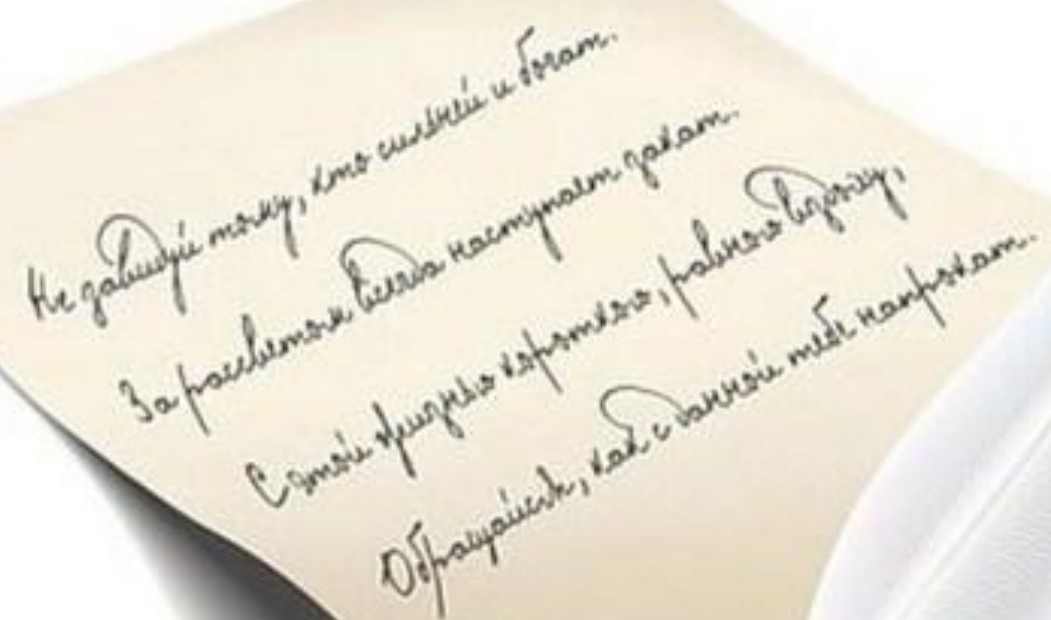 Не завидуй тому, кто силён и богат.
За рассветом всегда наступает закат.
С этой жизнью короткою, равною вздоху,
Обращайся, как с данной тебе напрокат.